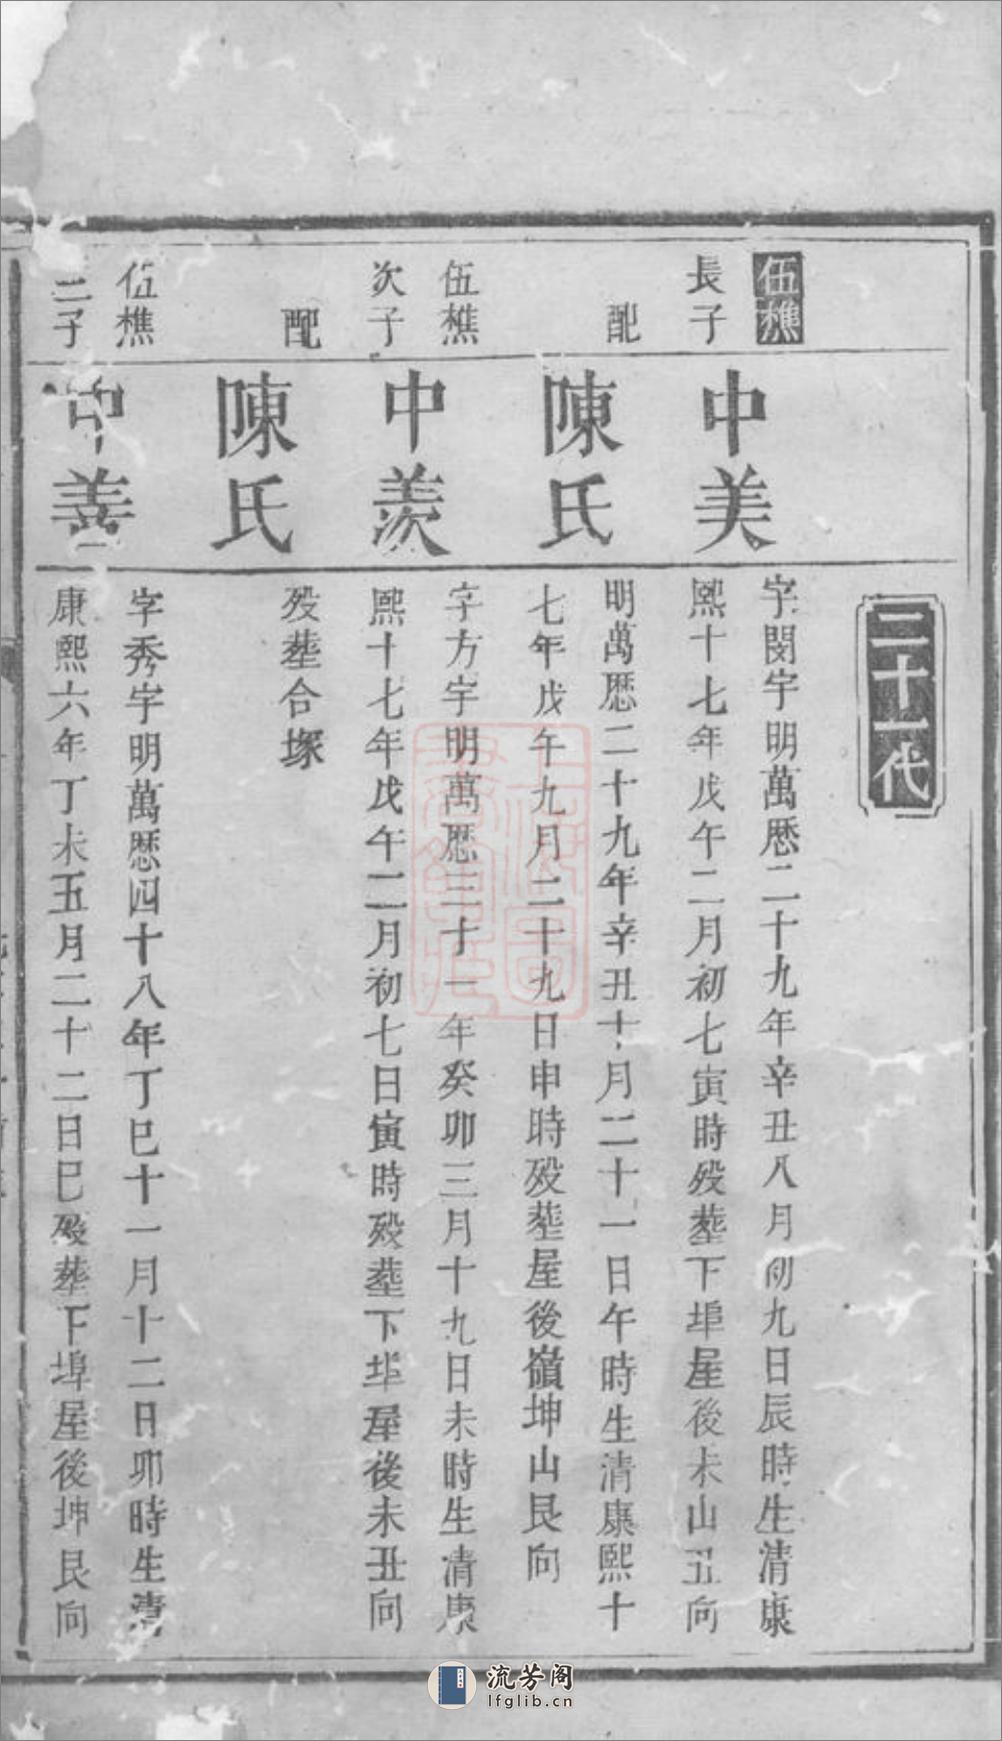 二十一代
伍樵
長子
中美
字閔宇明萬懕二十九年辛丑八月初九日辰時生清康
熙十七年戊午二月初七寅時殁塟下埠屋後未山丑向
配
陳氏
明萬懕二十九年辛丑十月二十一日午時生清康熙十
七年戊午九月二十九日申時殁塟屋後嶺坤山艮向
伍樵
次子
中羨
字方宇明萬懕三十一年癸卯三月十九日未時生清康
熙十七年戊午二月初七日寅時殁塟下埠屋後未丑向
配
陳氏
殁塟合塚
伍樵
三子
中善
字秀宇明萬懕四十八年丁巳十一月十二日卯時生清
康熙六年丁未五月二十二日巳殁葬下埠屋後坤艮向
流芳阁
lfglib.cn